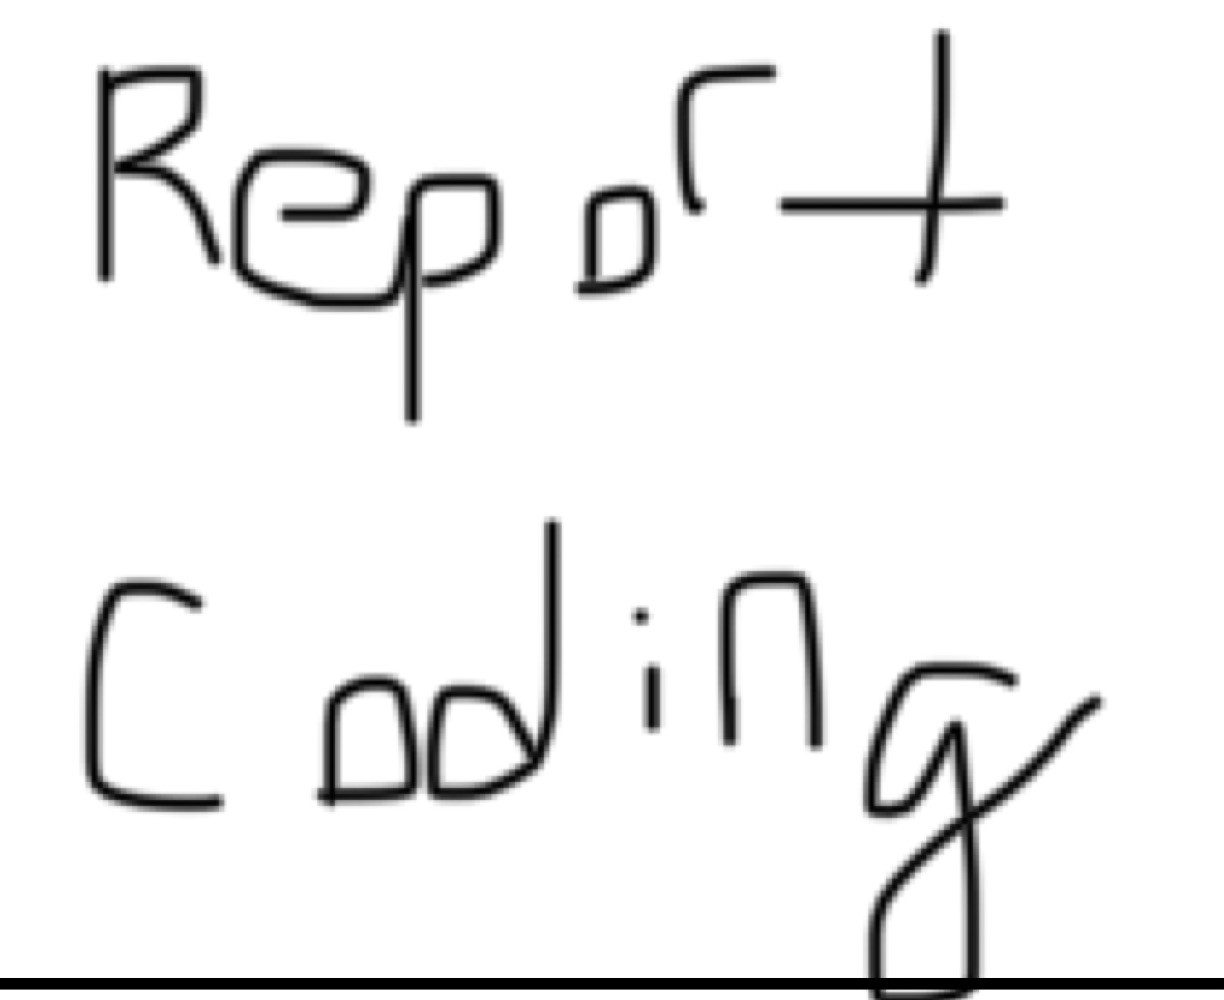 Report
Coding